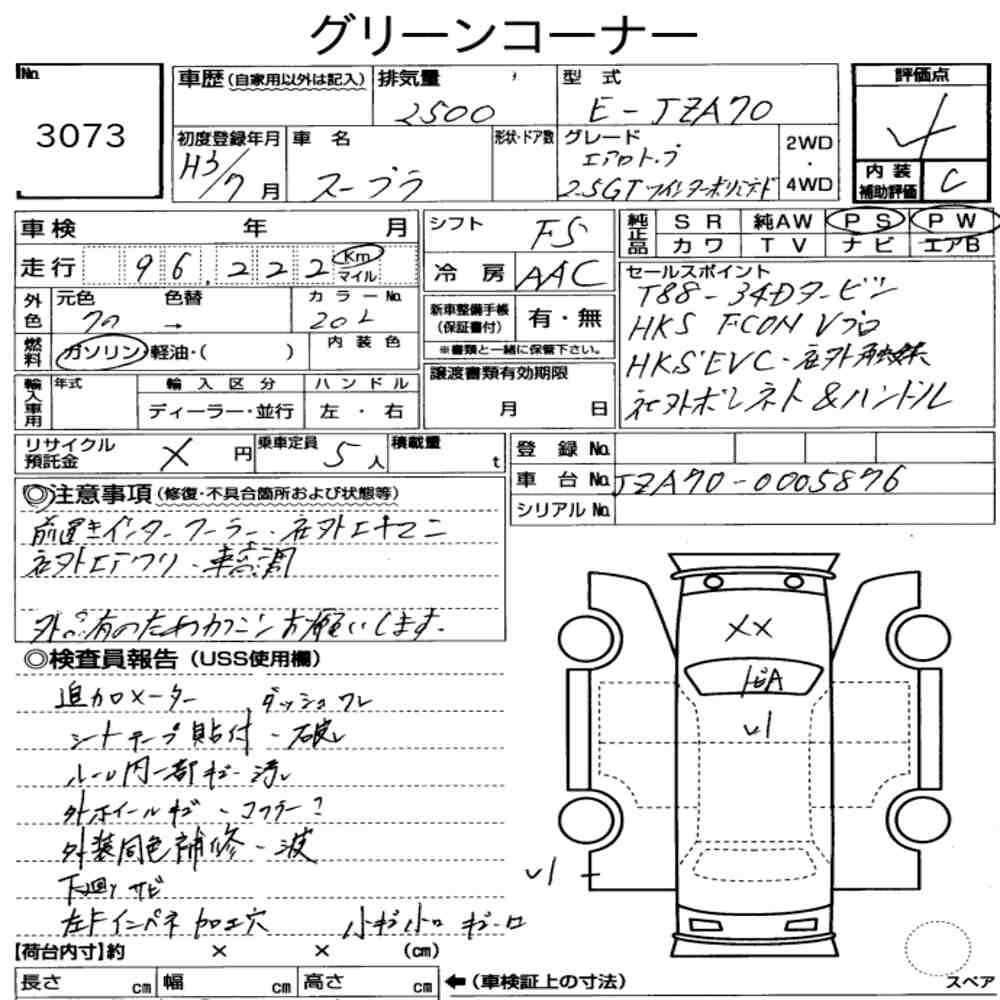 グリーンコーナー
No. 3073
車歴(自家用以外は記入) 排気量 2500
型式 E-JZA70
評価点 4
初度登録年月 H3/7月
車名 スープラ
形状・ドア数
グレード エアロトップ
2.5GT ツインターボリミテド
2WD・4WD
内装補助評価 C
車検 年 月
シフト F5
純正品 SR 純AW PS PW
カワ TV ナビ エアB
走行 96,222 Km マイル
冷房 AAC
セールスポイント
T88-34Dタービン
HKS F-CON Vプロ
HKS EVC・社外触媒
社外ボンネット&ハンドル
外色 元色 クロ → 色替 カラーNo. 202
新車整備手帳(保証書付) 有・無
※書類と一緒に保管下さい。
燃料 ガソリン 軽油・( ) 内装色
譲渡書類有効期限 月 日
輸入車用 年式 輸入区分 ハンドル
ディーラー・並行 左・右
リサイクル預託金 × 円 乗車定員 5人 積載量 t
登録No.
車台No. JZA70-0005876
シリアルNo.
◎注意事項(修復・不具合箇所および状態等)
前置きインタークーラー・社外エキマニ
社外エアクリ・車高調
外品有のためカクニンお願いします。
◎検査員報告(USS使用欄)
追加メーター ダッシュワレ
シートテープ貼付・破レ
ルーム内一部キズ・汚レ
外ホイールキズ・コゲラー?
外装同色補修・波
下廻りサビ
左Fインパネ加工穴 小キズ小凹 キズ凹
XX
トビA
U1
U1
【荷台内寸】約 × × (cm)
長さ cm 幅 cm 高さ cm ←(車検証上の寸法)
スペア